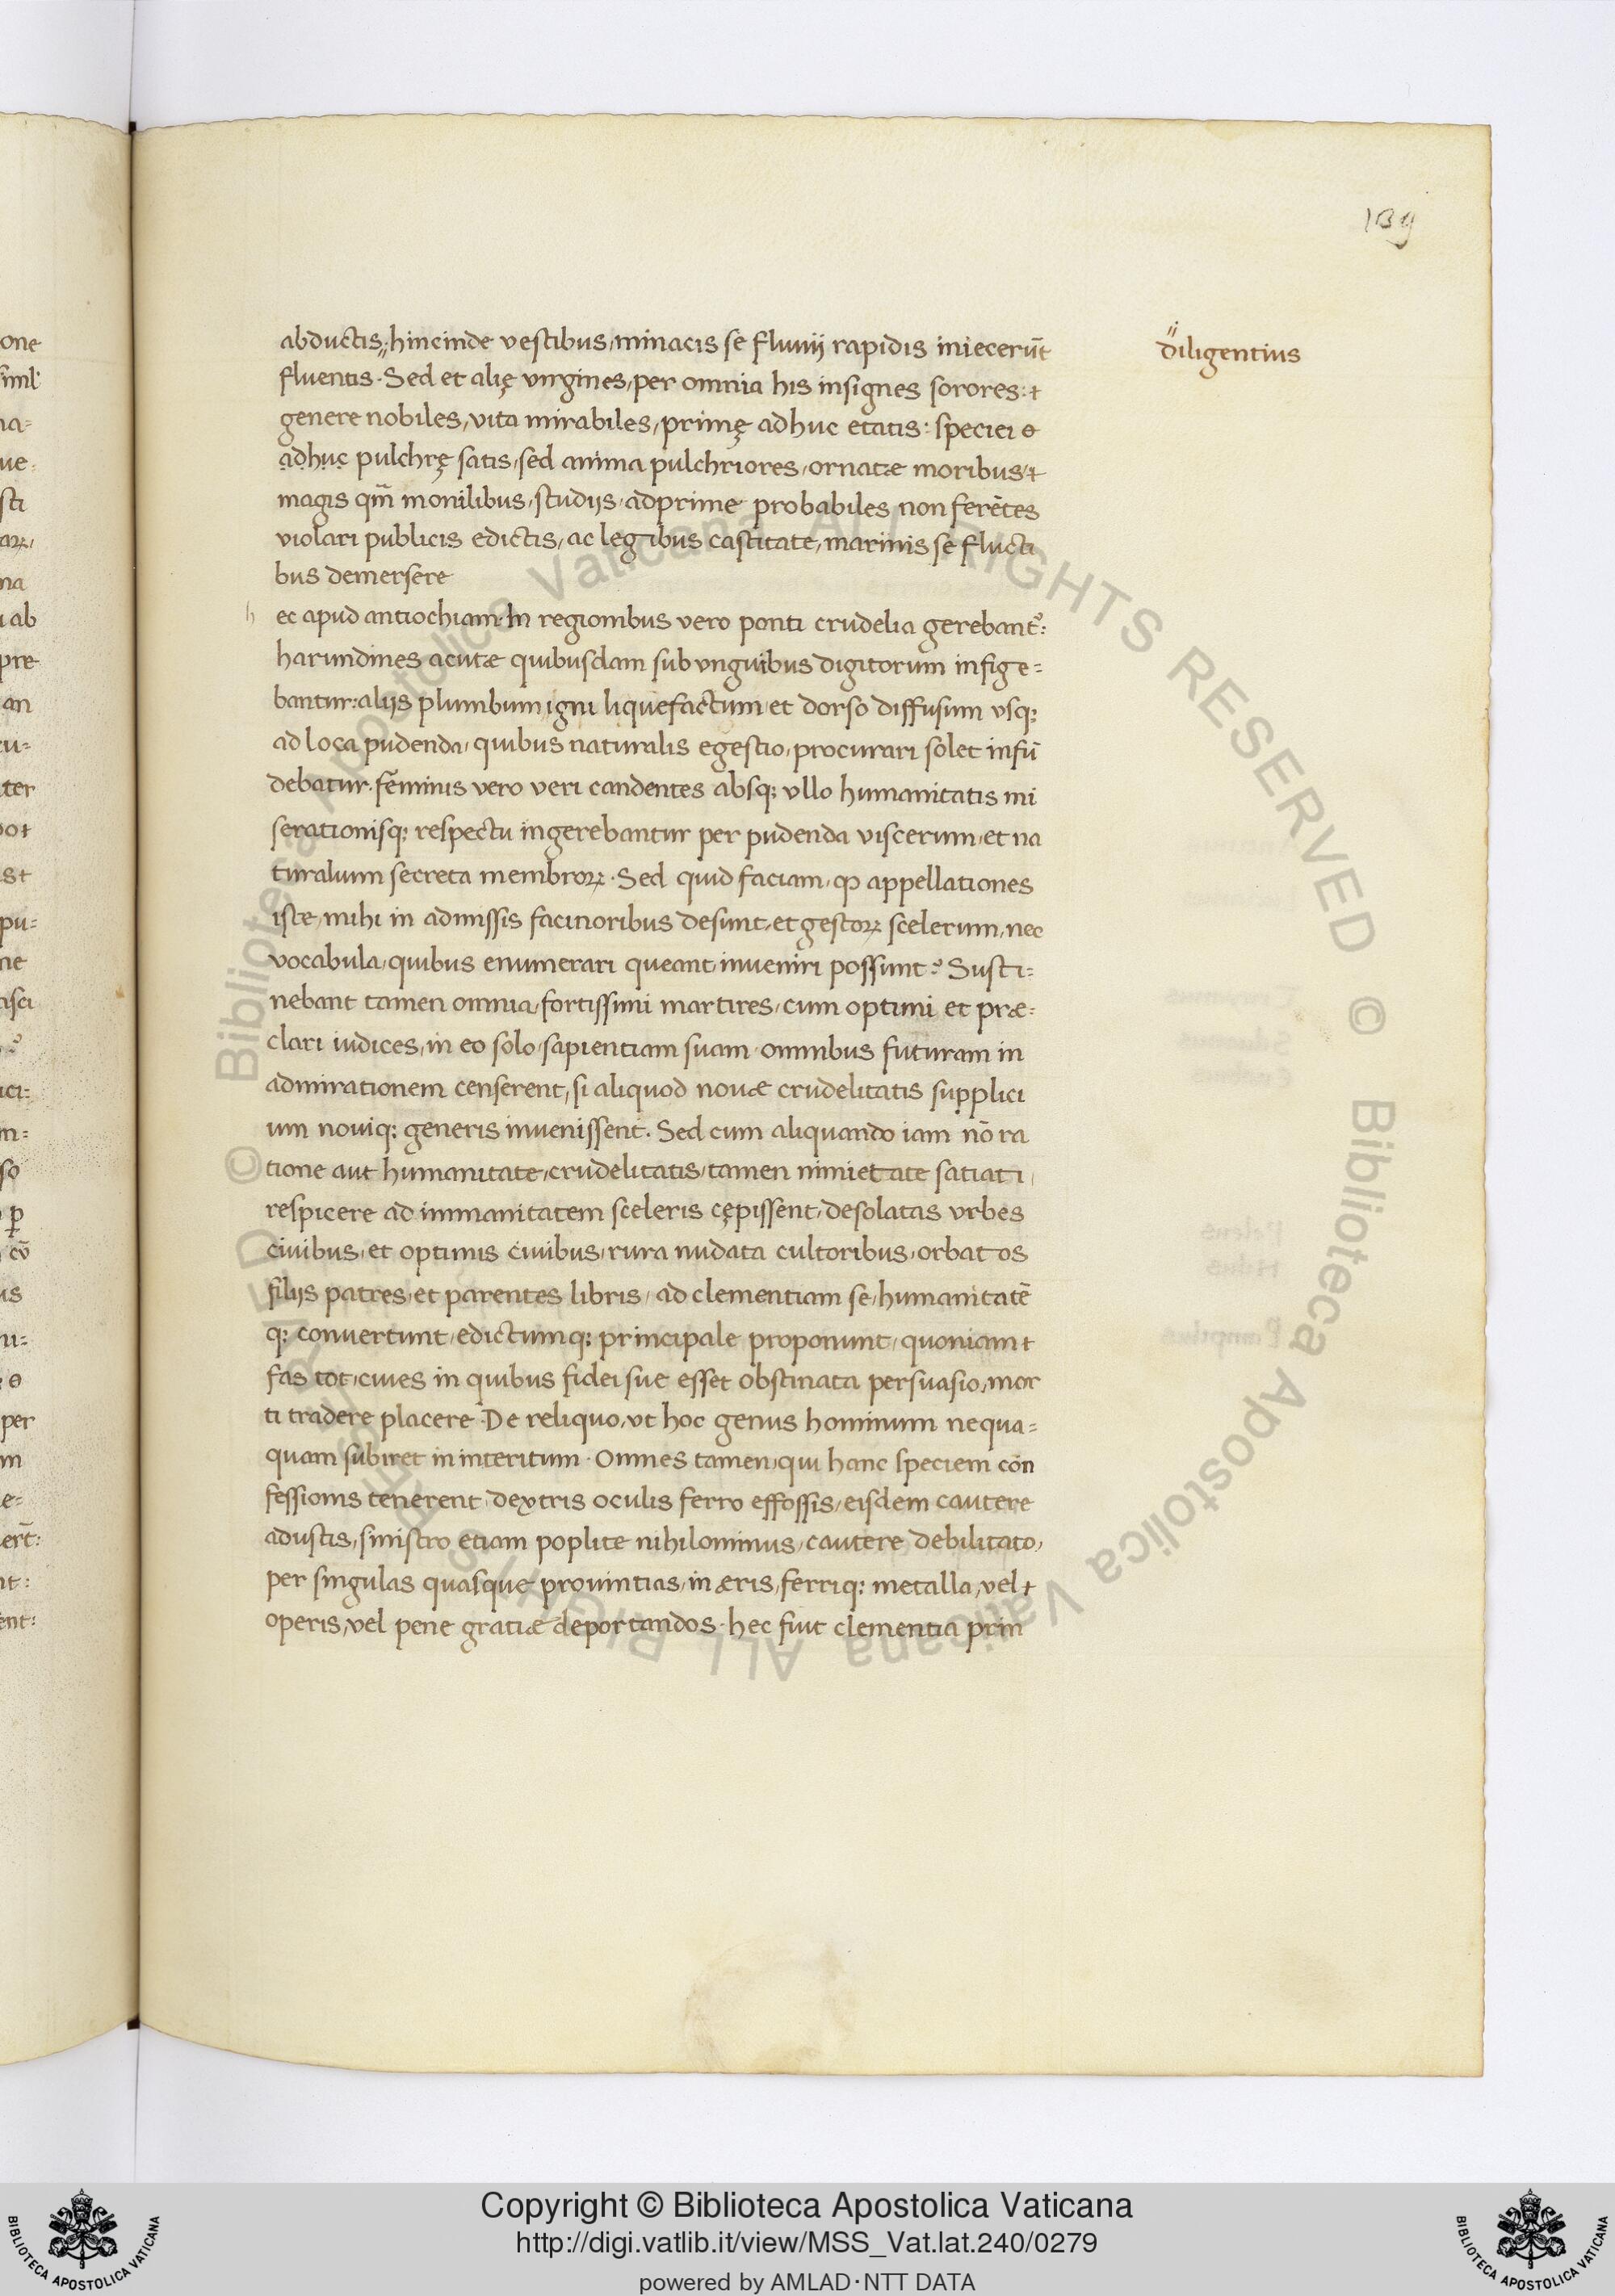 139
abductis,, hincinde vestibus, minacis se fluuij rapidis iniecerūt
fluentis. Sed et alię virgines, per omnia his insignes sorores: +
genere nobiles, vita mirabiles, primę adhuc etatis: speciei
adhuc pulchrę satis, sed anima pulchriores, ornatæ moribus, +
magis qm̄ monilibus, studijs, adprime probabiles non ferētes
violari publicis edictis, ac legibus castitate, marinis se flucti
bus demersere
h ec apud antiochiam. In regionibus vero ponti crudelia gerebant᷒:
harundines acutæ quibusdam sub vnguibus digitorum infige=
bantur: alijs plumbum igni liquefactum, et dorso diffusum vsq;
ad loca pudenda, quibus naturalis egestio, procurari solet infū
debatur. fēminis vero veri candentes absq; vllo humanitatis mi
serationisq; respectu ingerebantur per pudenda viscerum, et na
turalium secreta membroꝝ. Sed quid faciam, ꝙ appellationes
iste, mihi in admissis facinoribus desunt, et gestoꝝ scelerum, nec
vocabula, quibus enumerari queant inueniri possunt? Susti=
nebant tamen omnia, fortissimi martires, cum optimi et præ=
clari iudices, in eo solo, sapientiam suam, omnibus futuram in
admirationem censerent, si aliquod nouæ crudelitatis supplici
um nouiq; generis inuenissent. Sed cum aliquando iam nō ra
tione aut humanitate, crudelitatis, tamen nimietate satiati
respicere ad immanitatem sceleris cępissent, desolatas vrbes
ciuibus, et optimis ciuibus, rura nudata cultoribus, orbatos
filijs patres, et parentes libris, ad clementiam se, humanitatē
q; conuertunt, edictumq; principale proponunt, quoniam +
fas tot, ciues in quibus fidei sue esset obstinata persuasio, mor
ti tradere placere. De reliquo, vt hoc genus hominum nequa=
quam subiret in interitum. Omnes tamen, qui hanc speciem con
fessionis tenerent, dextris oculis ferro effossis, eisdem cautere
adustis, sinistro etiam poplite nihilominus, cautere debilitato,
per singulas quasque prouintias, in æris, ferriq; metalla, vel +
operis, vel pene gratiæ deportandos. hec fuit clementia prin
diligentius
© Biblioteca Apostolica Vaticana ALL RIGHTS RESERVED © Biblioteca Apostolica Vaticana ALL RIGHTS RESERVED
Copyright © Biblioteca Apostolica Vaticana
http://digi.vatlib.it/view/MSS_Vat.lat.240/0279
powered by AMLAD·NTT DATA
BIBLIOTECA APOSTOLICA VATICANA
BIBLIOTECA APOSTOLICA VATICANA